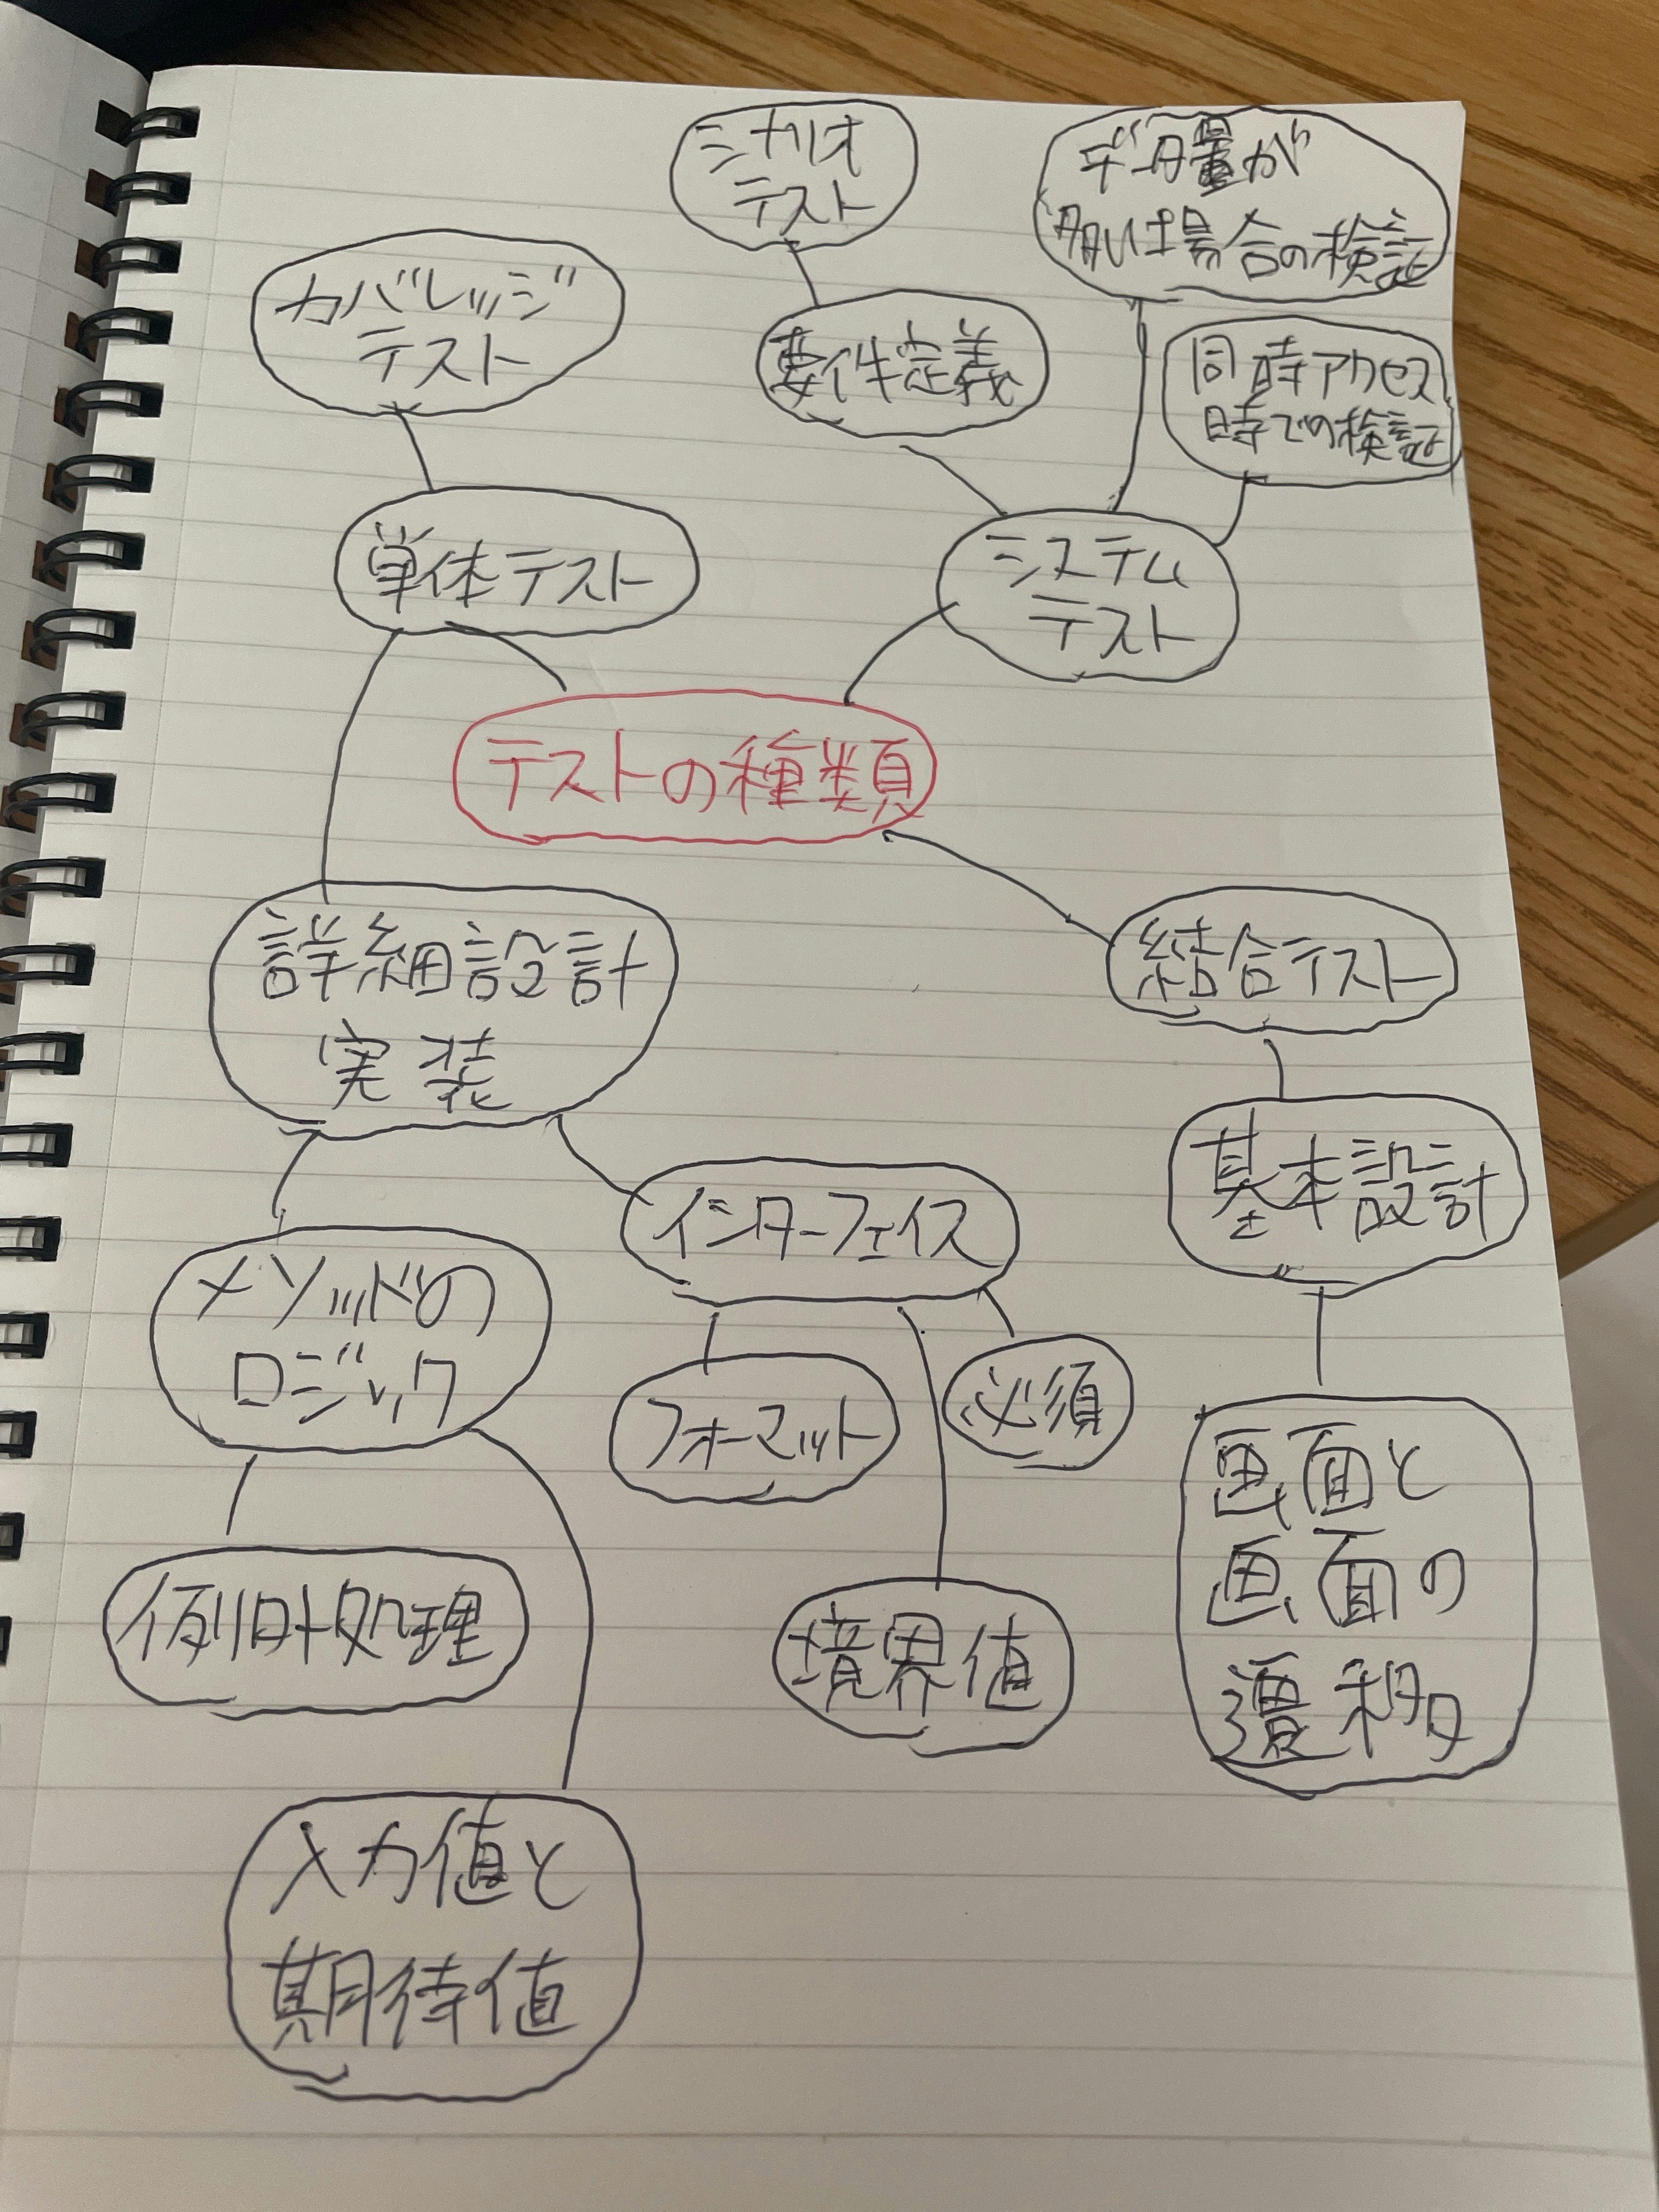 シナリオ
テスト
データ量が
多い場合の検証
カバレッジ
テスト
要件定義
同時アクセス
時での検証
単体テスト
システム
テスト
テストの種類
詳細設計
実装
結合テスト
基本設計
インターフェイス
メソッドの
ロジック
フォーマット
必須
画面と
画面の
遷移
例外処理
境界値
入力値と
期待値